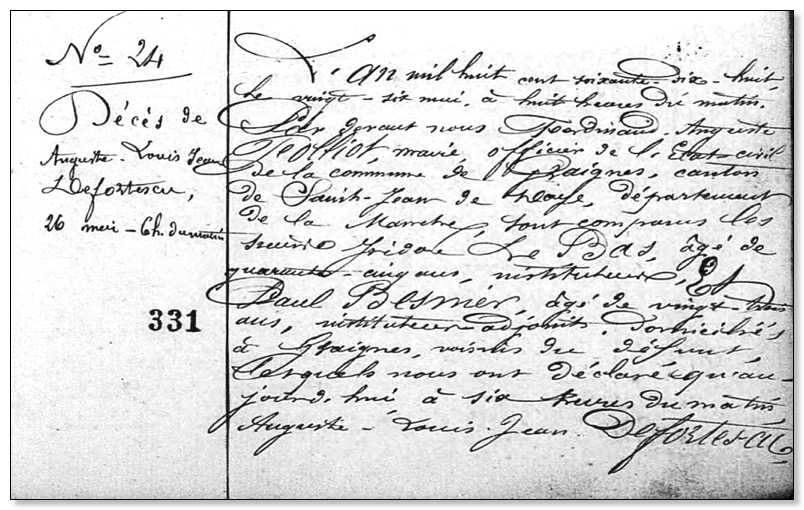 N° = 24
Décès de
Auguste-Louis Jean
Defortescu,
26 mai - 6h. du matin
331
L'an mil huit cent soixante-dix-huit,
le vingt-six mai, à huit heures du matin.
Par devant nous Ferdinand-Auguste
maire, officier de l'Etat-civil
de la commune de Graignes, canton
de Saint-Jean de Daye, département
de la Manche, sont comparus les
sieurs Isidore Le Bas, âgé de
quarante-cinq ans, instituteur, Et
Paul Besnier, âgé de vingt-trois
ans, instituteur adjoint, domiciliés
à Graignes, voisins du défunt,
Lesquels nous ont déclaré qu'au-
jourd'hui à six heures du matin,
Auguste-Louis-Jean Defortescu,